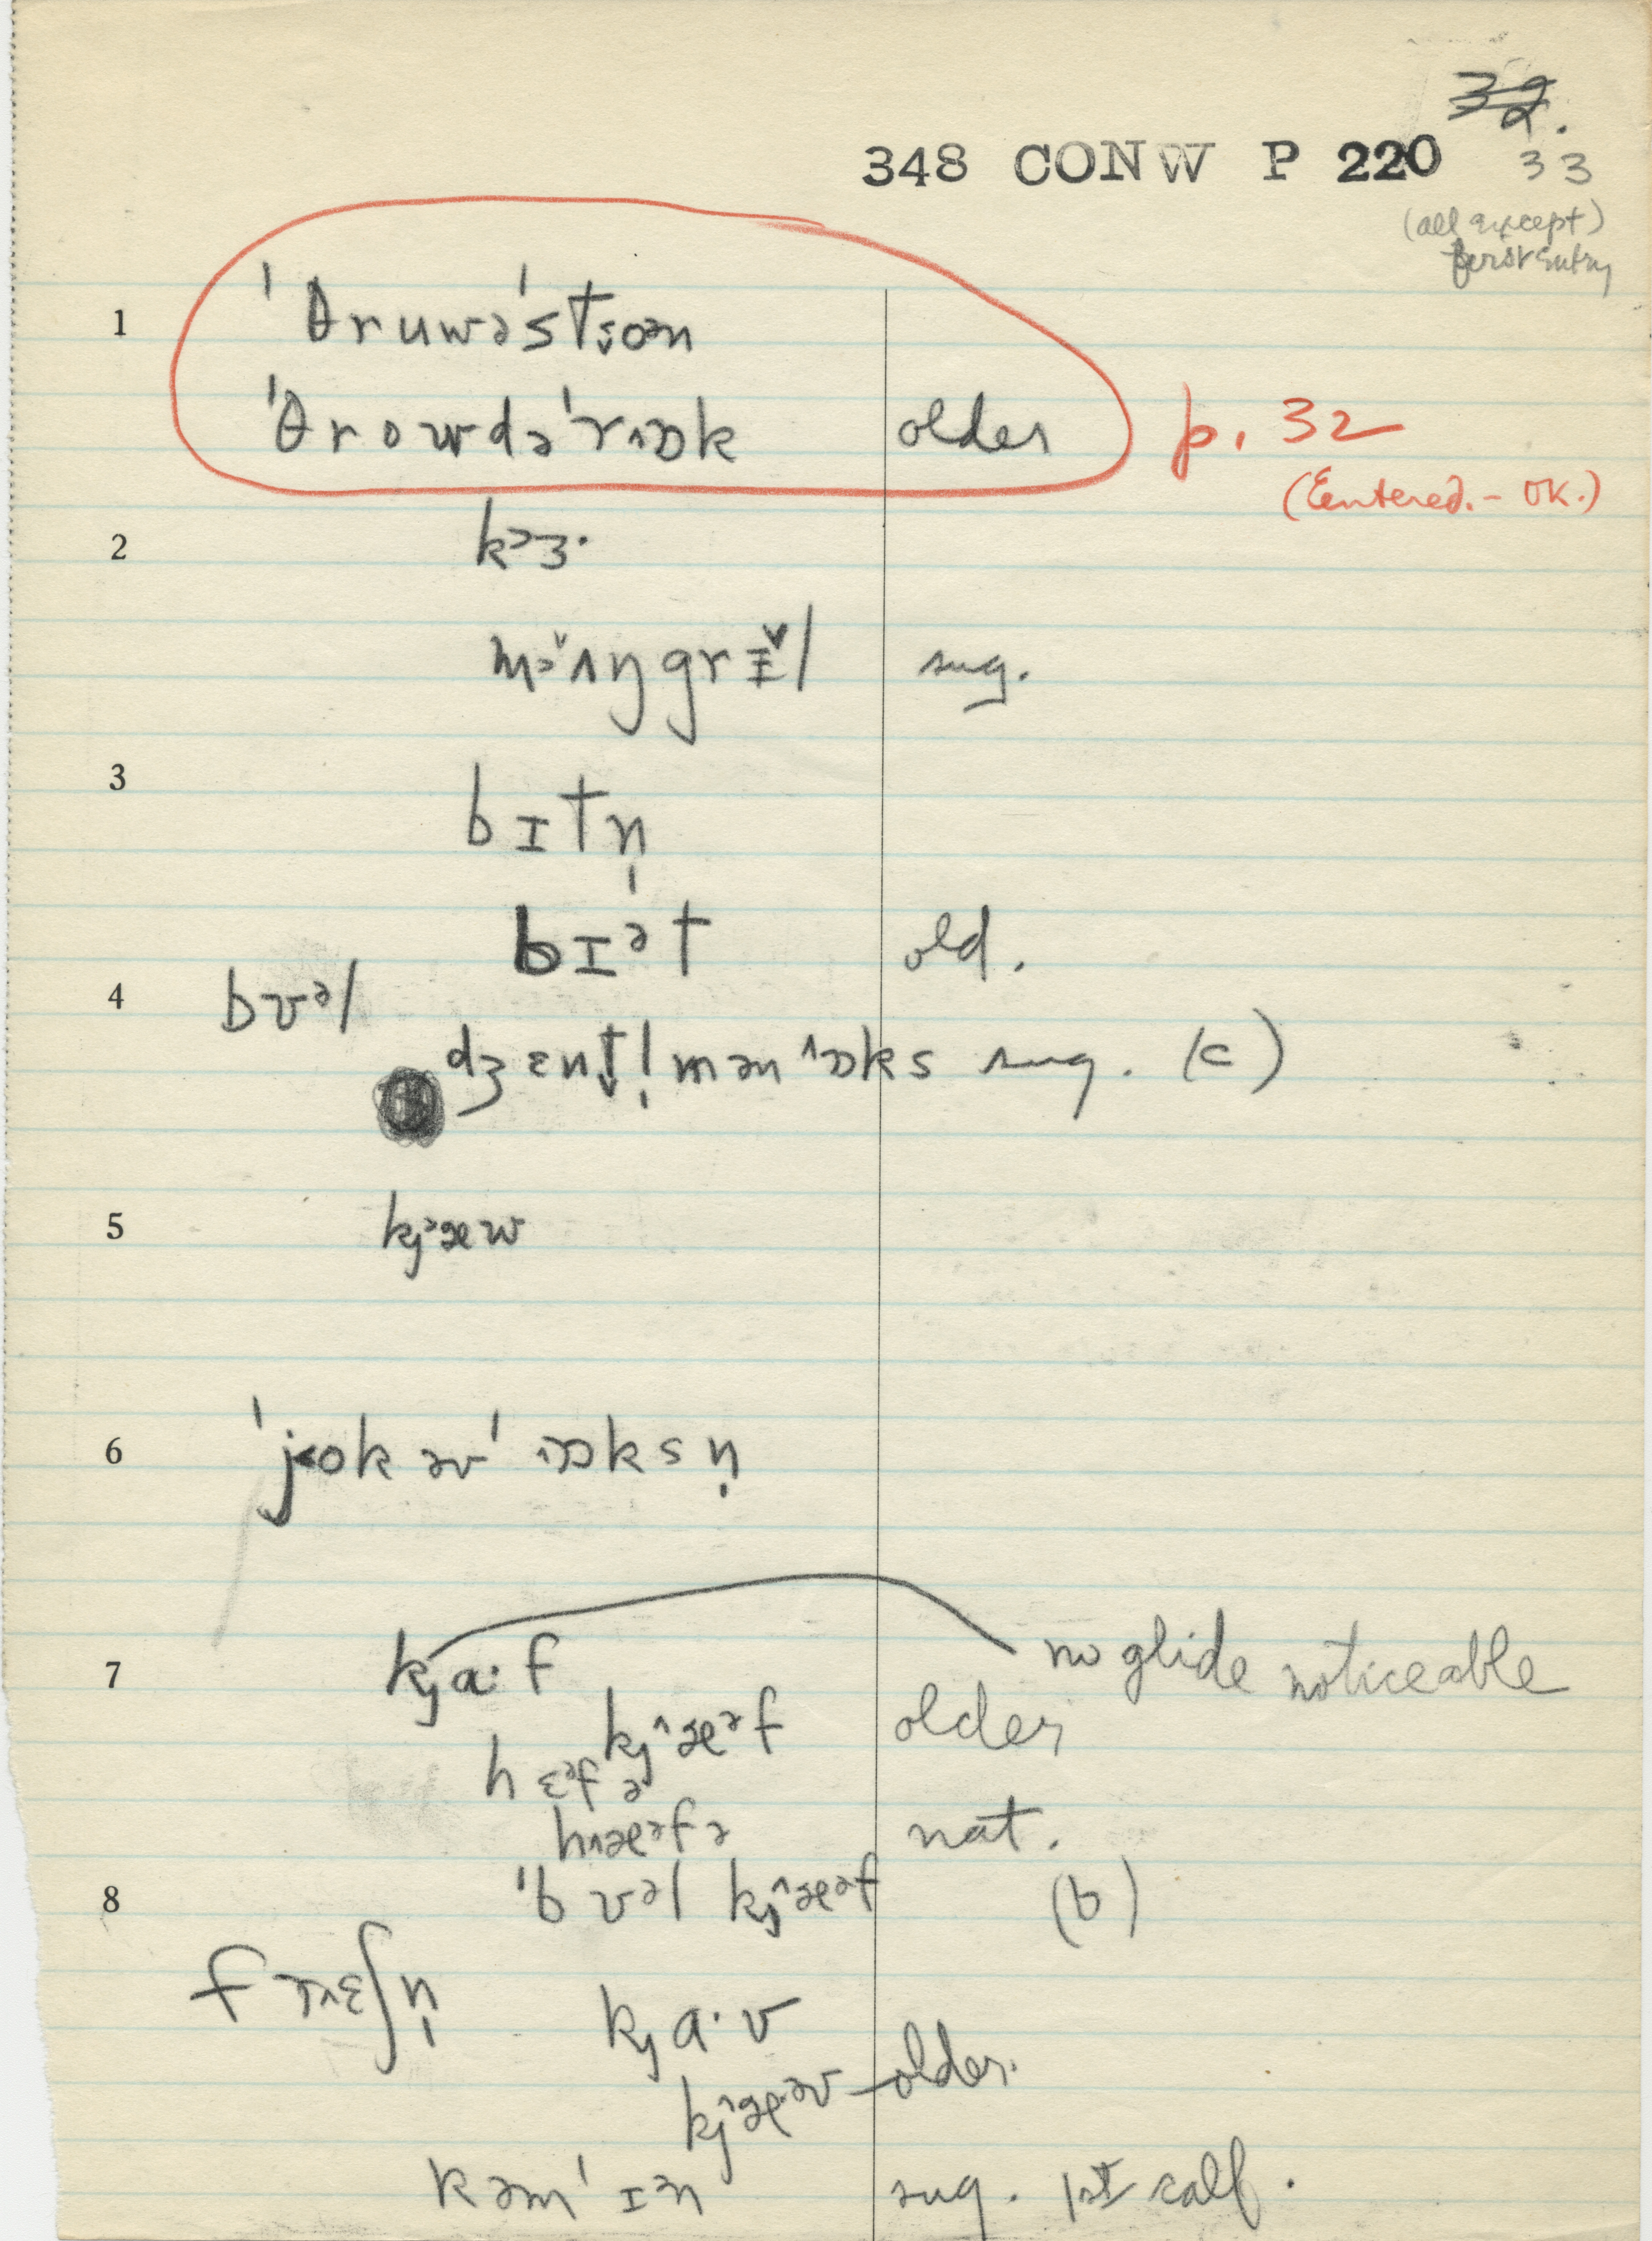 32.
348 CONW P 220 33
(all except)
first entry
1 ˈθruwəˈst̬s̬on
ˈθrowdəˈrʌɒk older p. 32
(Eentered. - OK.)
2 kɔɜ·
mɔ̌ʌŋgrɪ̵̌l sug.
3 bɪtn̩
bɪᵊt old.
4 bʊᵊl
dʒɛnt̬l̩mənˈɒks sug. (c)
5 kjᵊæw
6 ˈjokəvˈʌɒksn̩
7 kja·f no glide noticeable
kj^æᵊf older
hɛᵊfə
hʌæᵊfə nat.
8 ˈbʊəl kj^æᵊf (b)
frʌɛʃn̩
kja·v
kj^æᵊv older.
kəmˈɪən sug. 1st calf.